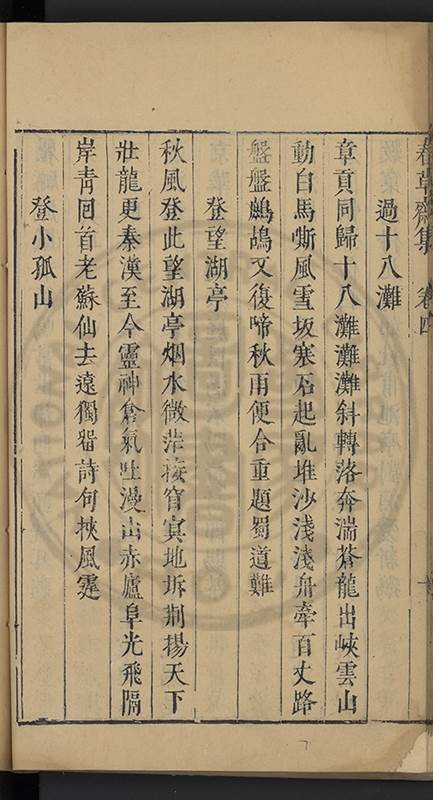 春草齋集 卷四
過十八灘
章貢同歸十八灘灘灘斜轉落奔湍蒼龍出峽雲山
動白馬嘶風雪坂寒石起亂堆沙淺淺舟牽百丈路
盤盤鷓鴣又復啼秋雨便合重題蜀道難
登望湖亭
秋風登此望湖亭烟水微茫接窅冥地坼荆揚天下
壯龍更秦漢至今靈神倉氣吐漫山赤廬阜光飛隔
岸靑回首老蘇仙去遠獨畱詩句挾風霆
登小孤山